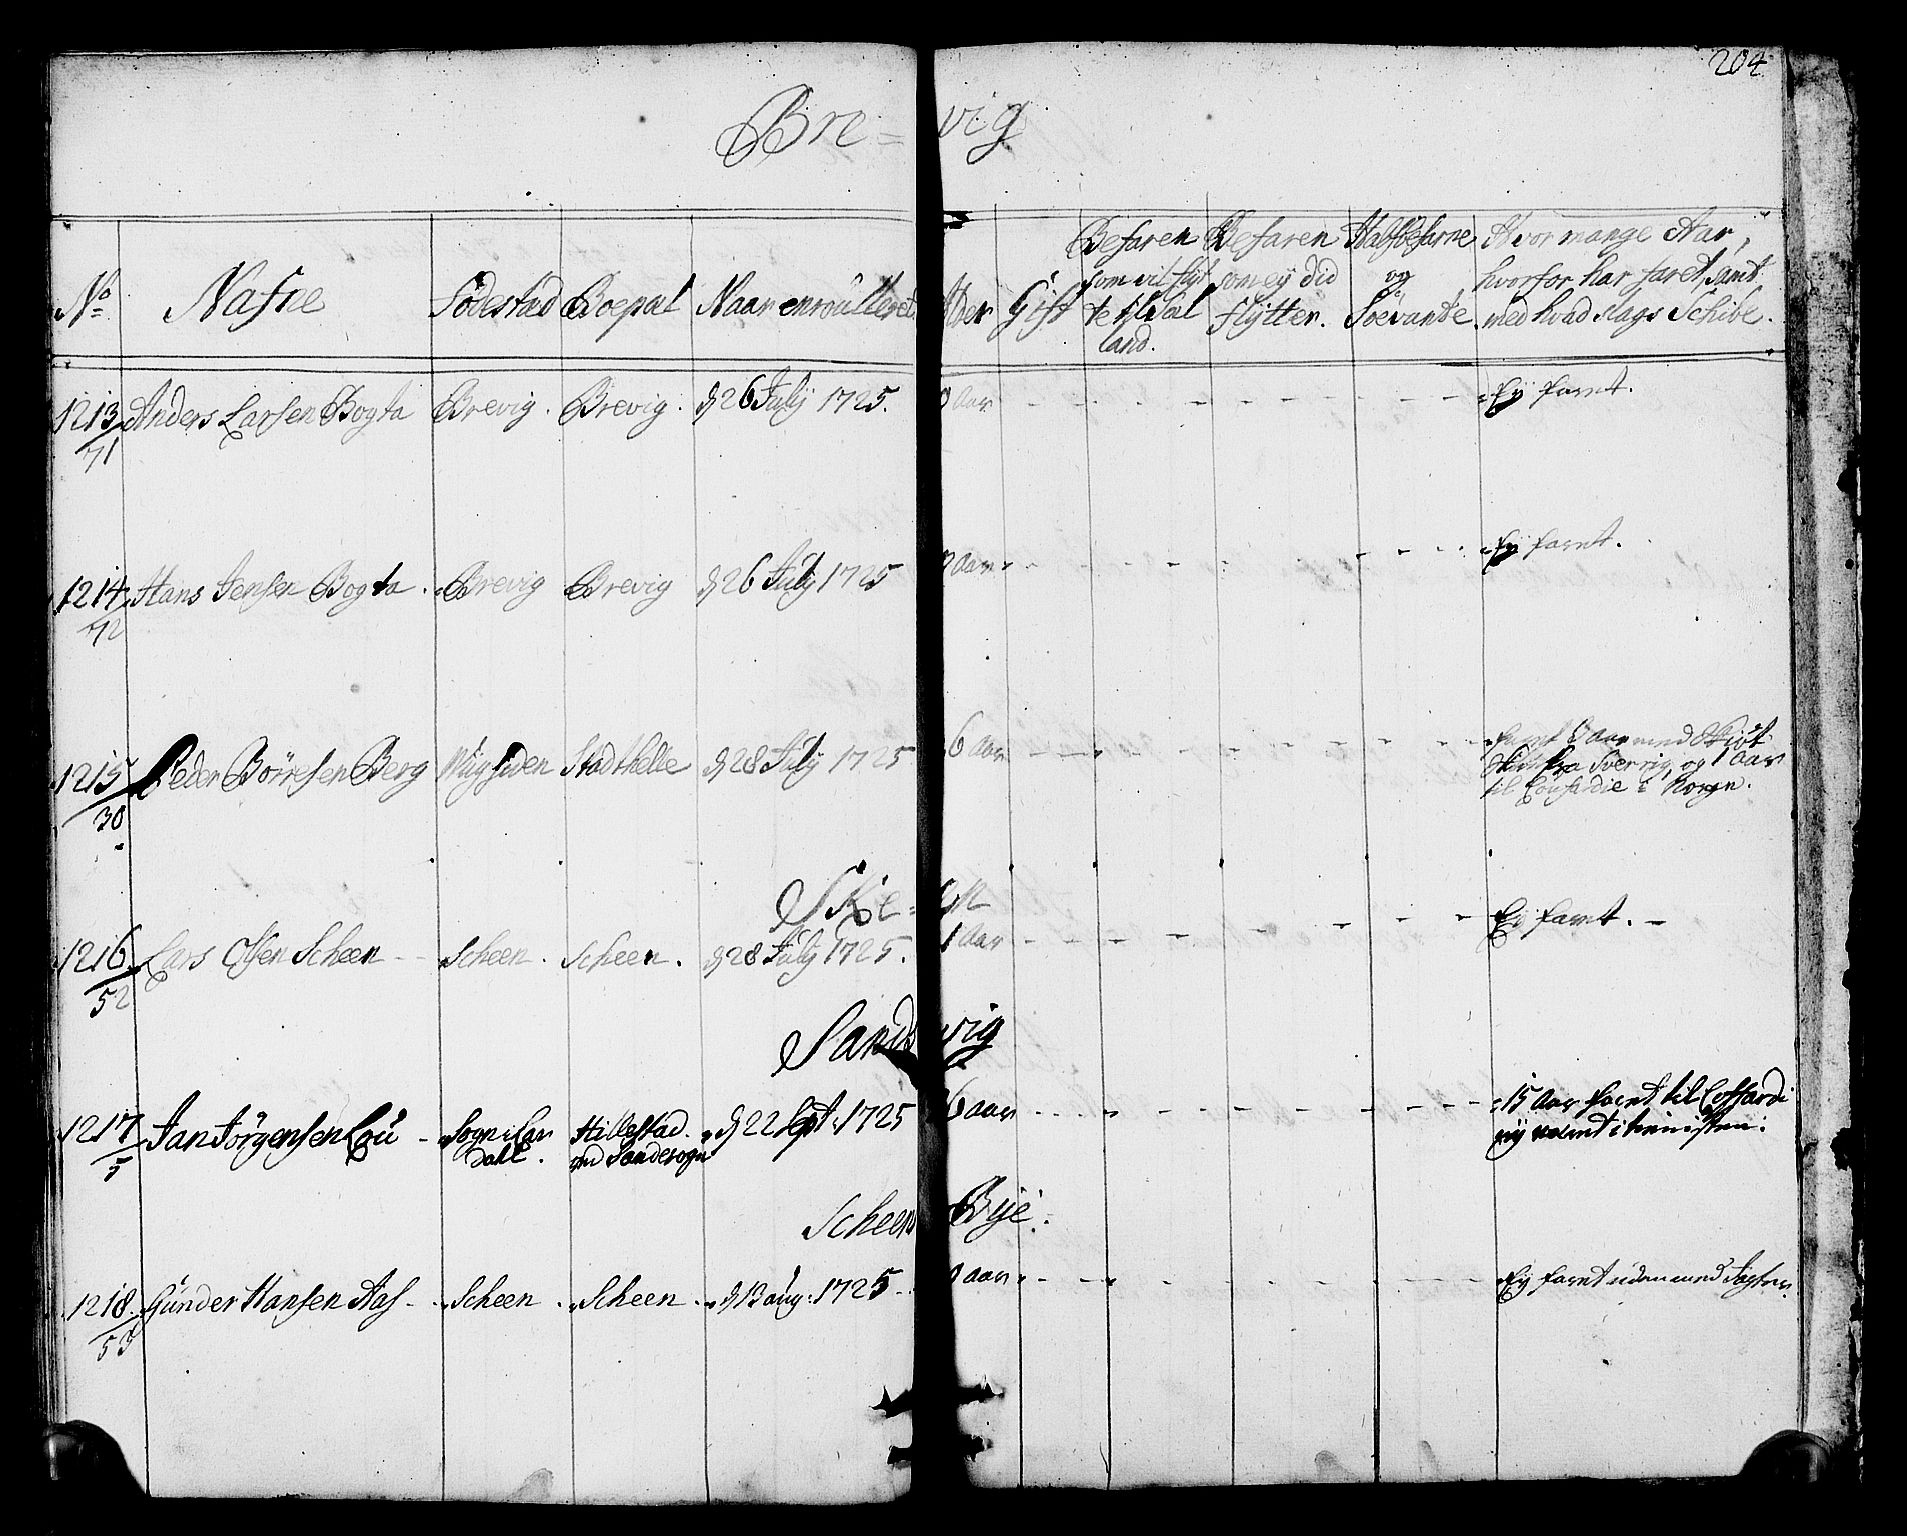 204
Bre= vig
No Nafne Födestad Boepæl Naar enroulleret Alder Gift Befaren som vil flyt te til Sæl land. Befaren som ey did flytter. Halfbefarne og Söevante. Hvor mange Aar, hvorfor har faret, samt med hvad slags Schibe.
1213/71 Anders Larsen Bogta Brevig. Brevig. d 26 July 1725. Aar Ey faret.
1214/72 Hans Jensen Bogta. Brevig Brevig d 26 July 1725 Aar Ey faret.
1215/30 Peder Börresen Berg Stadthelle d 28 July 1725 6 Aar
faret Aar med
fra Sverrig, og 1 Aar
til Coufardie i Norge.
Skie=
1216/52 Lars Olsen Scheen Scheen. Scheen. d 28 July 1725. 1 Aar Ey faret.
Sands vig
1217/5 Jan Jörgensen Lou Sogn i Lar dahl. Hillestad ved Sandesogn d 22 Sept: 1725 6 aar 15 Aar faret til Coffardi
ey været i tienisten.
Scheens Bye:
1218/53 Gunder Hansen Aas Scheen Scheen d 13 aug: 1725 aar Ey faret uden med Jagter.